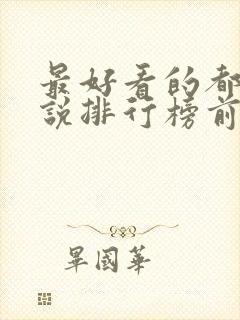 最好看的都
說排行榜前
畢國華